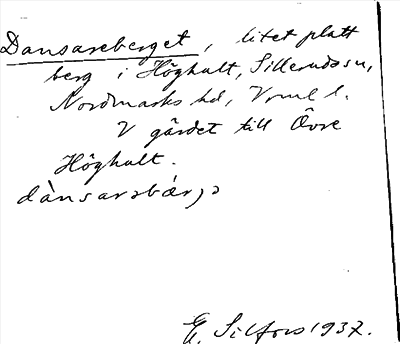 Dansareberget, litet platt
berg i Höghult, Sillerudssn,
Nordmarks hd, Vrml l.
I gärdet till Övre
Höghult.
dànsarəbær̨ə
E. Silfors 1937.